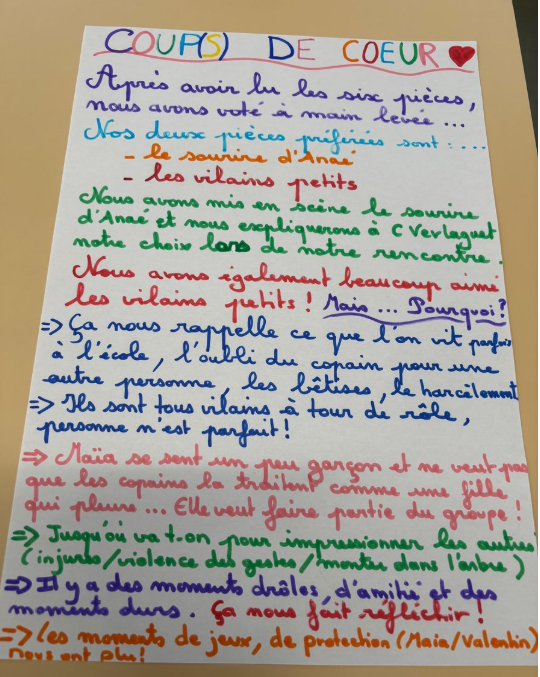 COUP(S) DE COEUR
Après avoir lu les six pièces,
nous avons voté à main levée ...
Nos deux pièces préférées sont : ...
- le sourire d'Anaé
- les vilains petits
Nous avons mis en scène le sourire
d'Anaé et nous expliquerons à C Verlaguet
notre choix lors de notre rencontre.
Nous avons également beaucoup aimé
les vilains petits ! Mais ... Pourquoi ?
=> Ça nous rappelle ce que l'on vit parfois
à l'école, l'oubli du copain pour une
autre personne, les bêtises, le harcèlement
=> Ils sont tous vilains à tour de rôle,
personne n'est parfait !
=> Maïa se sent un peu garçon et ne veut pas
que les copains la traitent comme une fille
qui pleure ... Elle veut faire partie du groupe !
=> Jusqu'où va t-on pour impressionner les autres
(injures/violence des gestes/monter dans l'arbre)
=> Il y a des moments drôles, d'amitié et des
moments durs. Ça nous fait réfléchir !
=> Les moments de jeux, de protection (Maïa/Valentin)
nous ont plu !